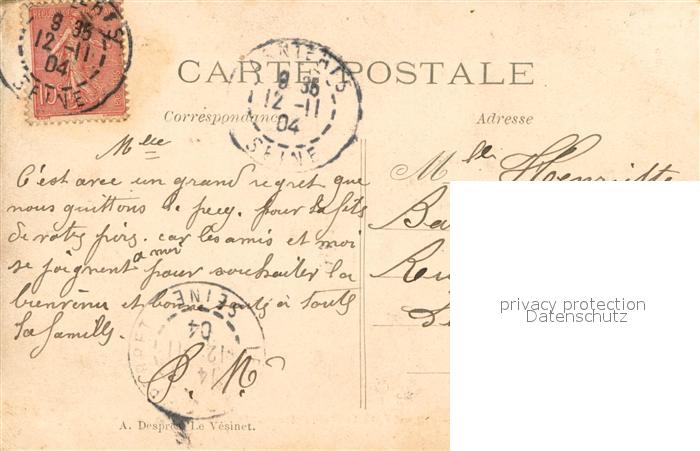 CARTE POSTALE
NANTERRE
8 35
12 -11
04
SEINE
Correspondance
Adresse
Mlle
C'est avec un grand regret que
nous quittons le pecq. pour la fête
de votre père. car les amis et moi
se joignent a moi pour souhaiter la
bienvenu et bonne santé à toute
la famille.
P. M.
Mlle Henriette
Ba
Ru
Le
privacy protection
Datenschutz
SEINE
04
12 11
14
A. Desprès Le Vésinet.